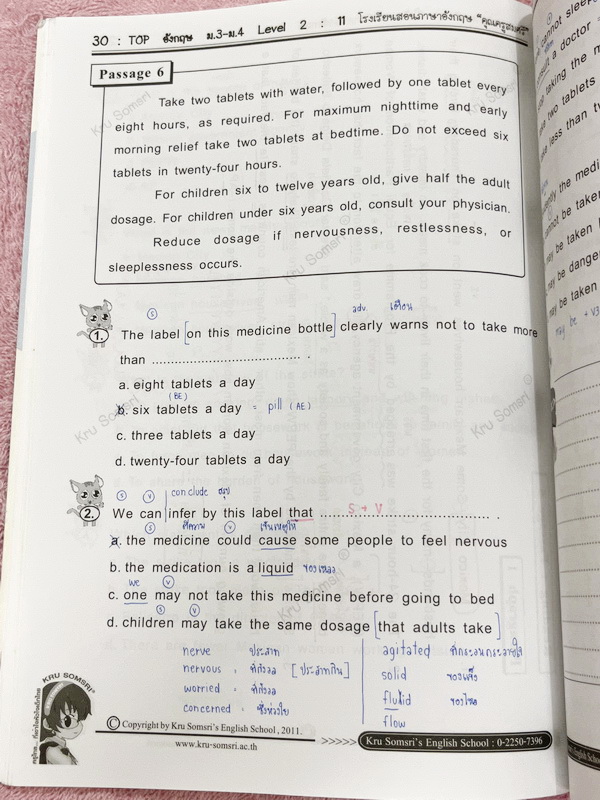 30 : TOP อังกฤษ ม.3-ม.4 Level 2 : 11 โรงเรียนสอนภาษาอังกฤษ "คุณครูสมศรี"
Passage 6
Take two tablets with water, followed by one tablet every
eight hours, as required. For maximum nighttime and early
morning relief take two tablets at bedtime. Do not exceed six
tablets in twenty-four hours.
For children six to twelve years old, give half the adult
dosage. For children under six years old, consult your physician.
Reduce dosage if nervousness, restlessness, or
sleeplessness occurs.
S adv. เตือน
1. The label [on this medicine bottle] clearly warns not to take more
than ..................................... .
a. eight tablets a day
(BE)
b. six tablets a day = pill (AE)
c. three tablets a day
d. twenty-four tablets a day
S V conclude สรุป
2. We can infer by this label that .......... S + V .......... .
S V
a. the medicine could cause some people to feel nervous
b. the medication is a liquid ของเหลว
we V
c. one may not take this medicine before going to bed
S V
d. children may take the same dosage [that adults take]
nerve ประสาท agitated
nervous : ที่กังวล [ประสาทกิน] solid ของแข็ง
worried : ที่กังวล fluid ของไหล
concerned = flow
KRU SOMSRI
© Copyright by Kru Somsri's English School , 2011.
www.kru-somsri.ac.th >>>>> Kru Somsri's English School : 0-2250-7396
cannot sleep
a doctor
taking the m
two tablets
less than tw
the medi
cannot be taken
may be taken
may be dange
may be taken
may be + V3
Kru Somsri ©
Kru Somsri ©
Kru Somsri ©
Kru Somsri ©